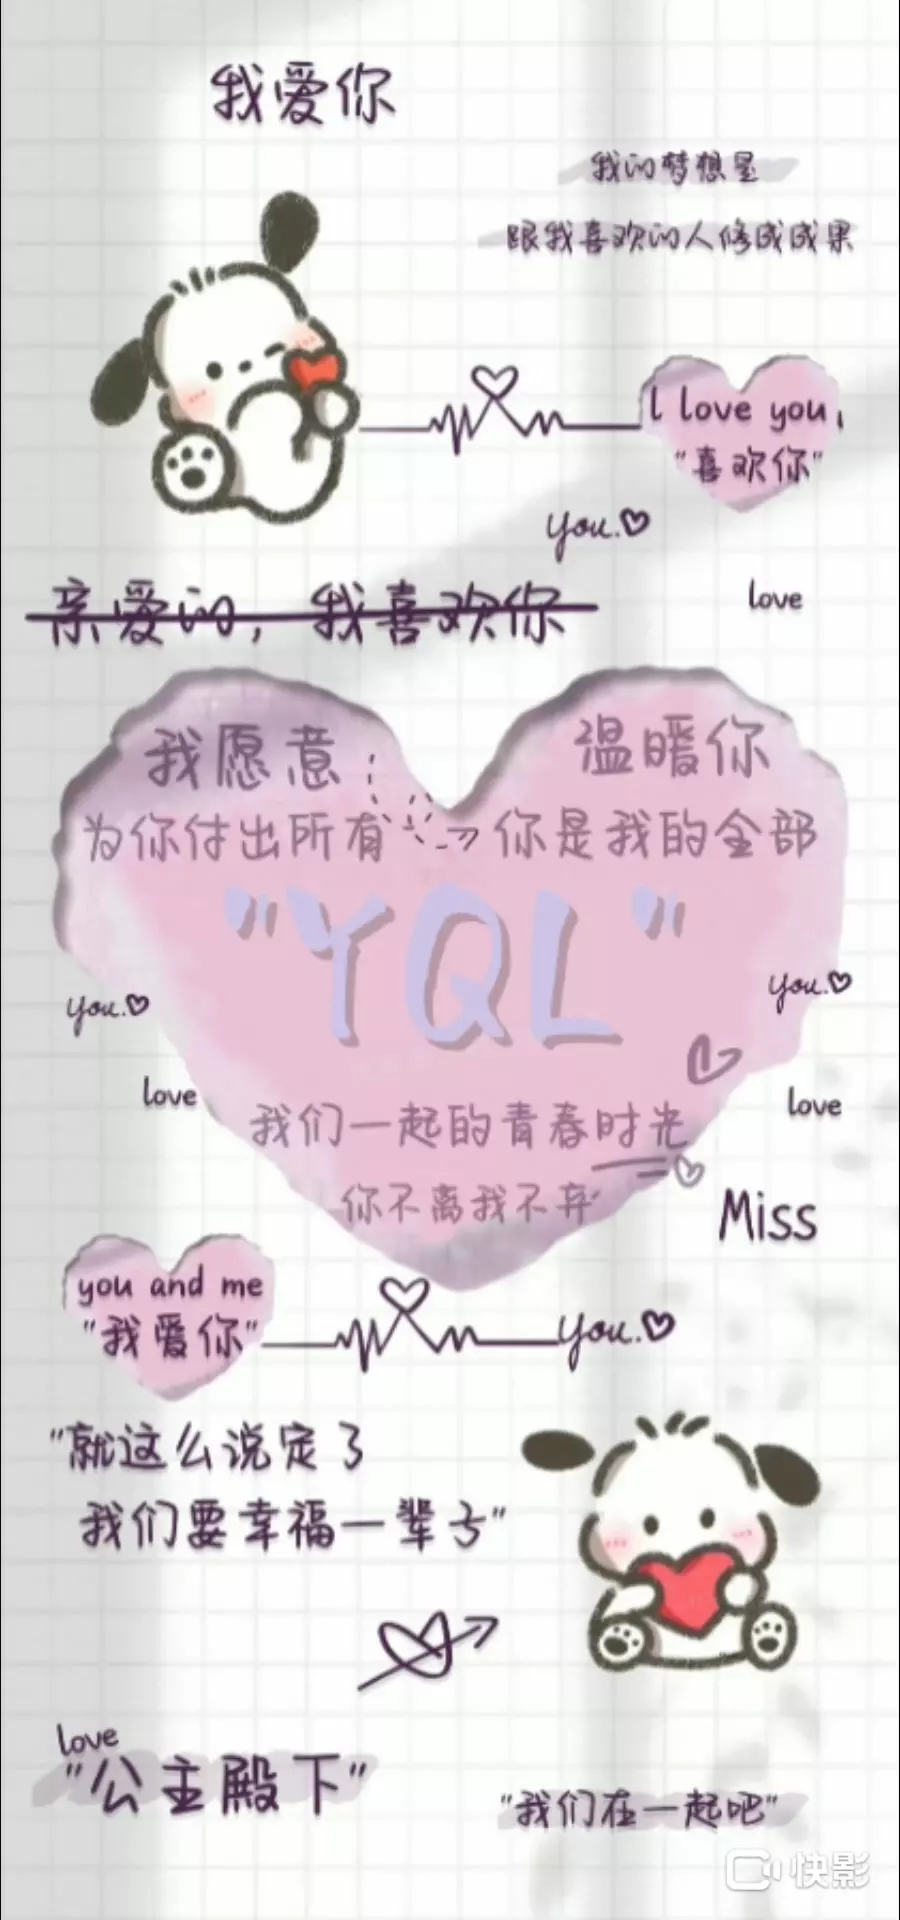 我爱你
我的梦想是
跟我喜欢的人修成成果
I love you,
"喜欢你"
you.
love
亲爱的，我喜欢你
我愿意 温暖你
为你付出所有 你是我的全部
"YQL"
you. you.
love love
我们一起的青春时光
你不离我不弃
Miss
you and me
"我爱你"
you.
"就这么说定了
我们要幸福一辈子"
love
"公主殿下"
"我们在一起吧"
快影